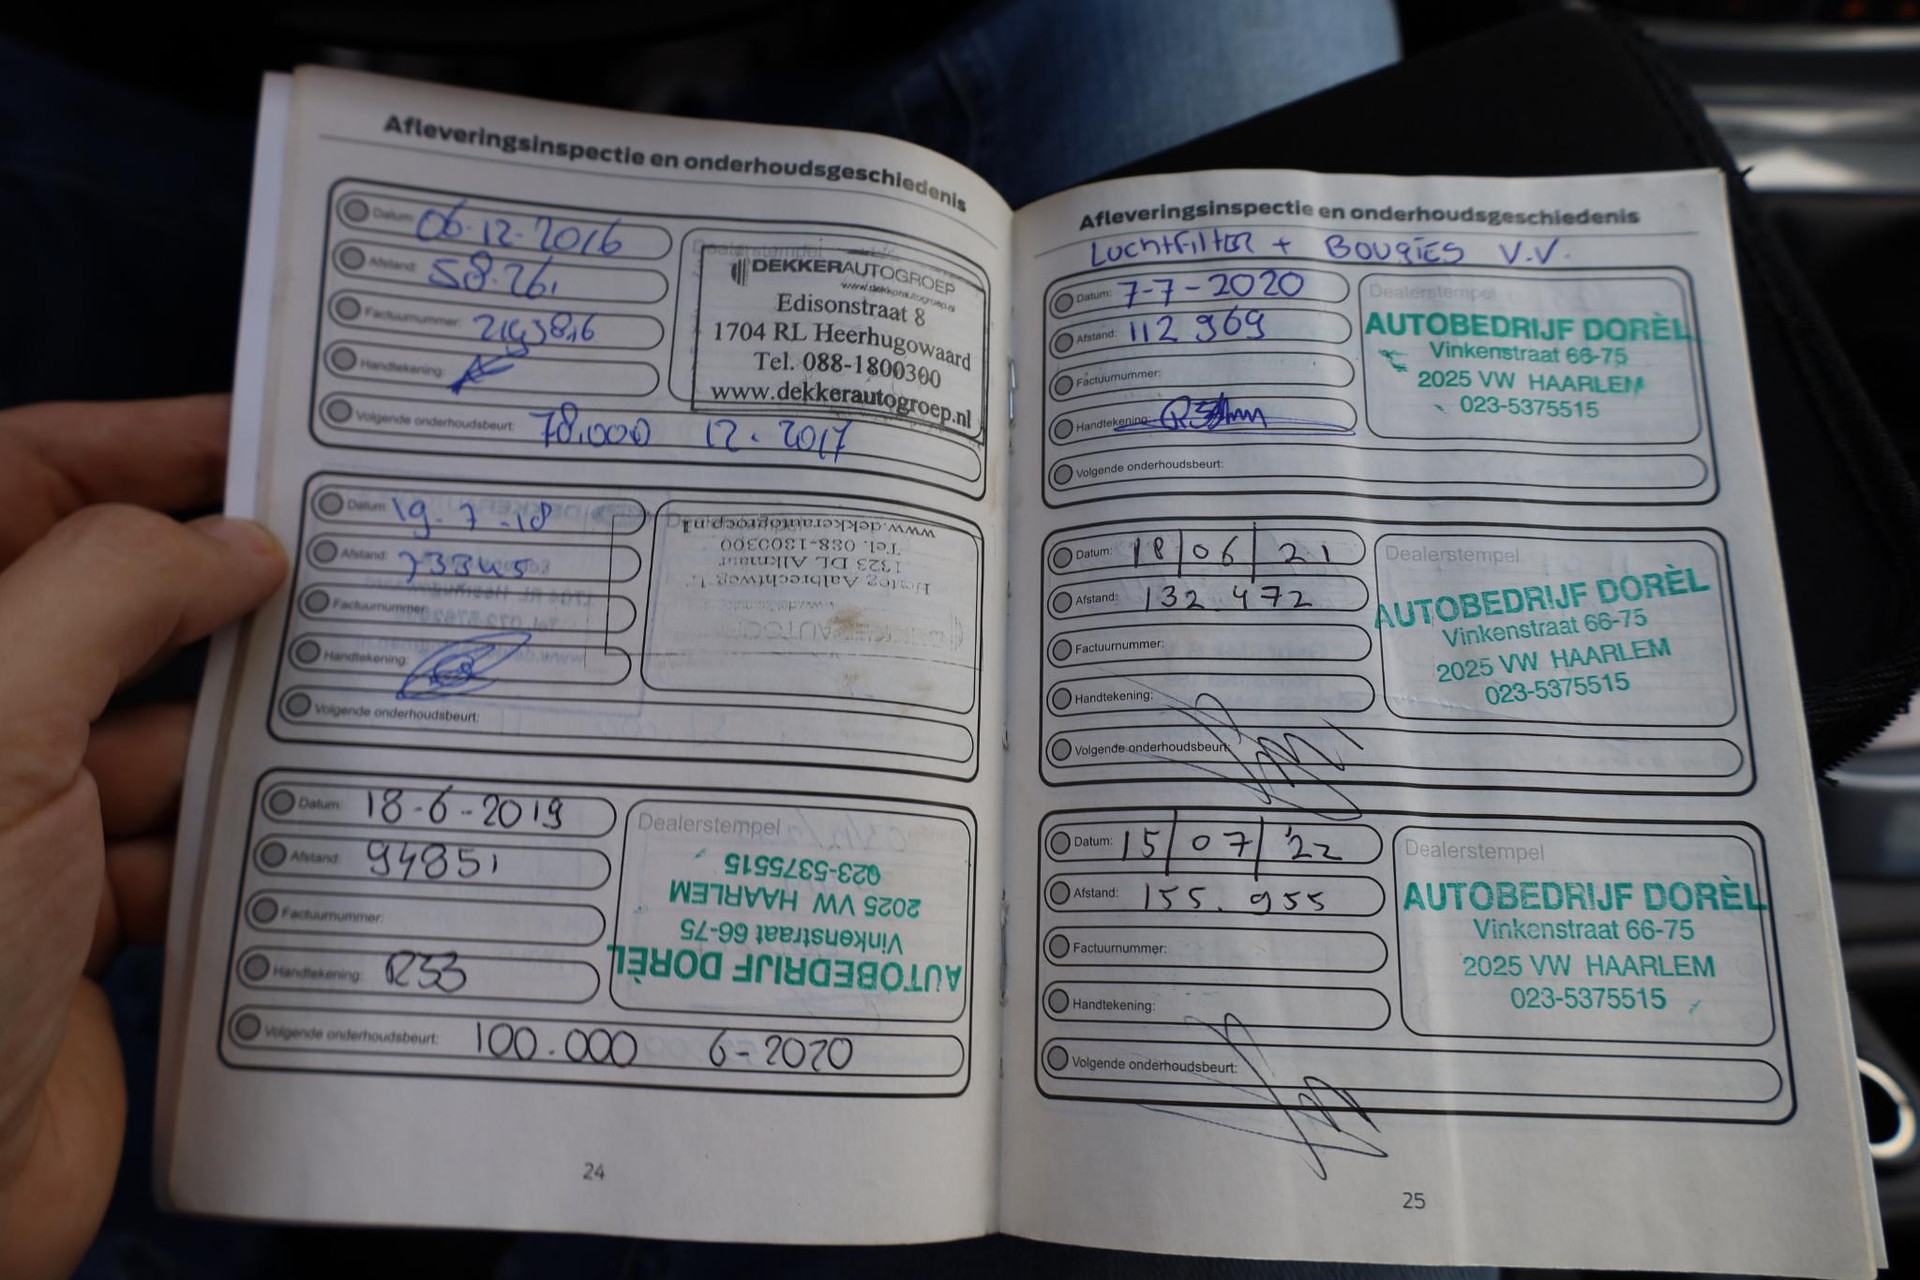 Afleveringsinspectie en onderhoudsgeschiedenis
Datum: 06-12-2016
Afstand: 58.261
Factuurnummer:
Handtekening:
Volgende onderhoudsbeurt: 78.000 12-2017
Dealerstempel
DEKKERAUTOGROEP
www.dekkerautogroep.nl
Edisonstraat 8
1704 RL Heerhugowaard
Tel. 088-1800300
www.dekkerautogroep.nl
Datum: 19-7-18
Afstand: 73345
Factuurnummer:
Handtekening:
Volgende onderhoudsbeurt:
DEKKERAUTOGROEP
Hertog Aalbrechtweg
1823 DL Alkmaar
Tel. 088-1800300
www.dekkerautogroep.nl
Datum: 18-6-2019
Afstand: 94851
Factuurnummer:
Handtekening:
Volgende onderhoudsbeurt: 100.000 6-2020
Dealerstempel
AUTOBEDRIJF DORÈL
Vinkenstraat 66-75
2025 VW HAARLEM
023-5375515
24
Afleveringsinspectie en onderhoudsgeschiedenis
LUCHTFILTER + BOUGIES V.V.
Datum: 7-7-2020
Afstand: 112969
Factuurnummer:
Handtekening:
Volgende onderhoudsbeurt:
Dealerstempel
AUTOBEDRIJF DORÈL
Vinkenstraat 66-75
2025 VW HAARLEM
023-5375515
Datum: 18/06/21
Afstand: 132.472
Factuurnummer:
Handtekening:
Volgende onderhoudsbeurt:
Dealerstempel
AUTOBEDRIJF DORÈL
Vinkenstraat 66-75
2025 VW HAARLEM
023-5375515
Datum: 15/07/'22
Afstand: 155.955
Factuurnummer:
Handtekening:
Volgende onderhoudsbeurt:
Dealerstempel
AUTOBEDRIJF DORÈL
Vinkenstraat 66-75
2025 VW HAARLEM
023-5375515
25